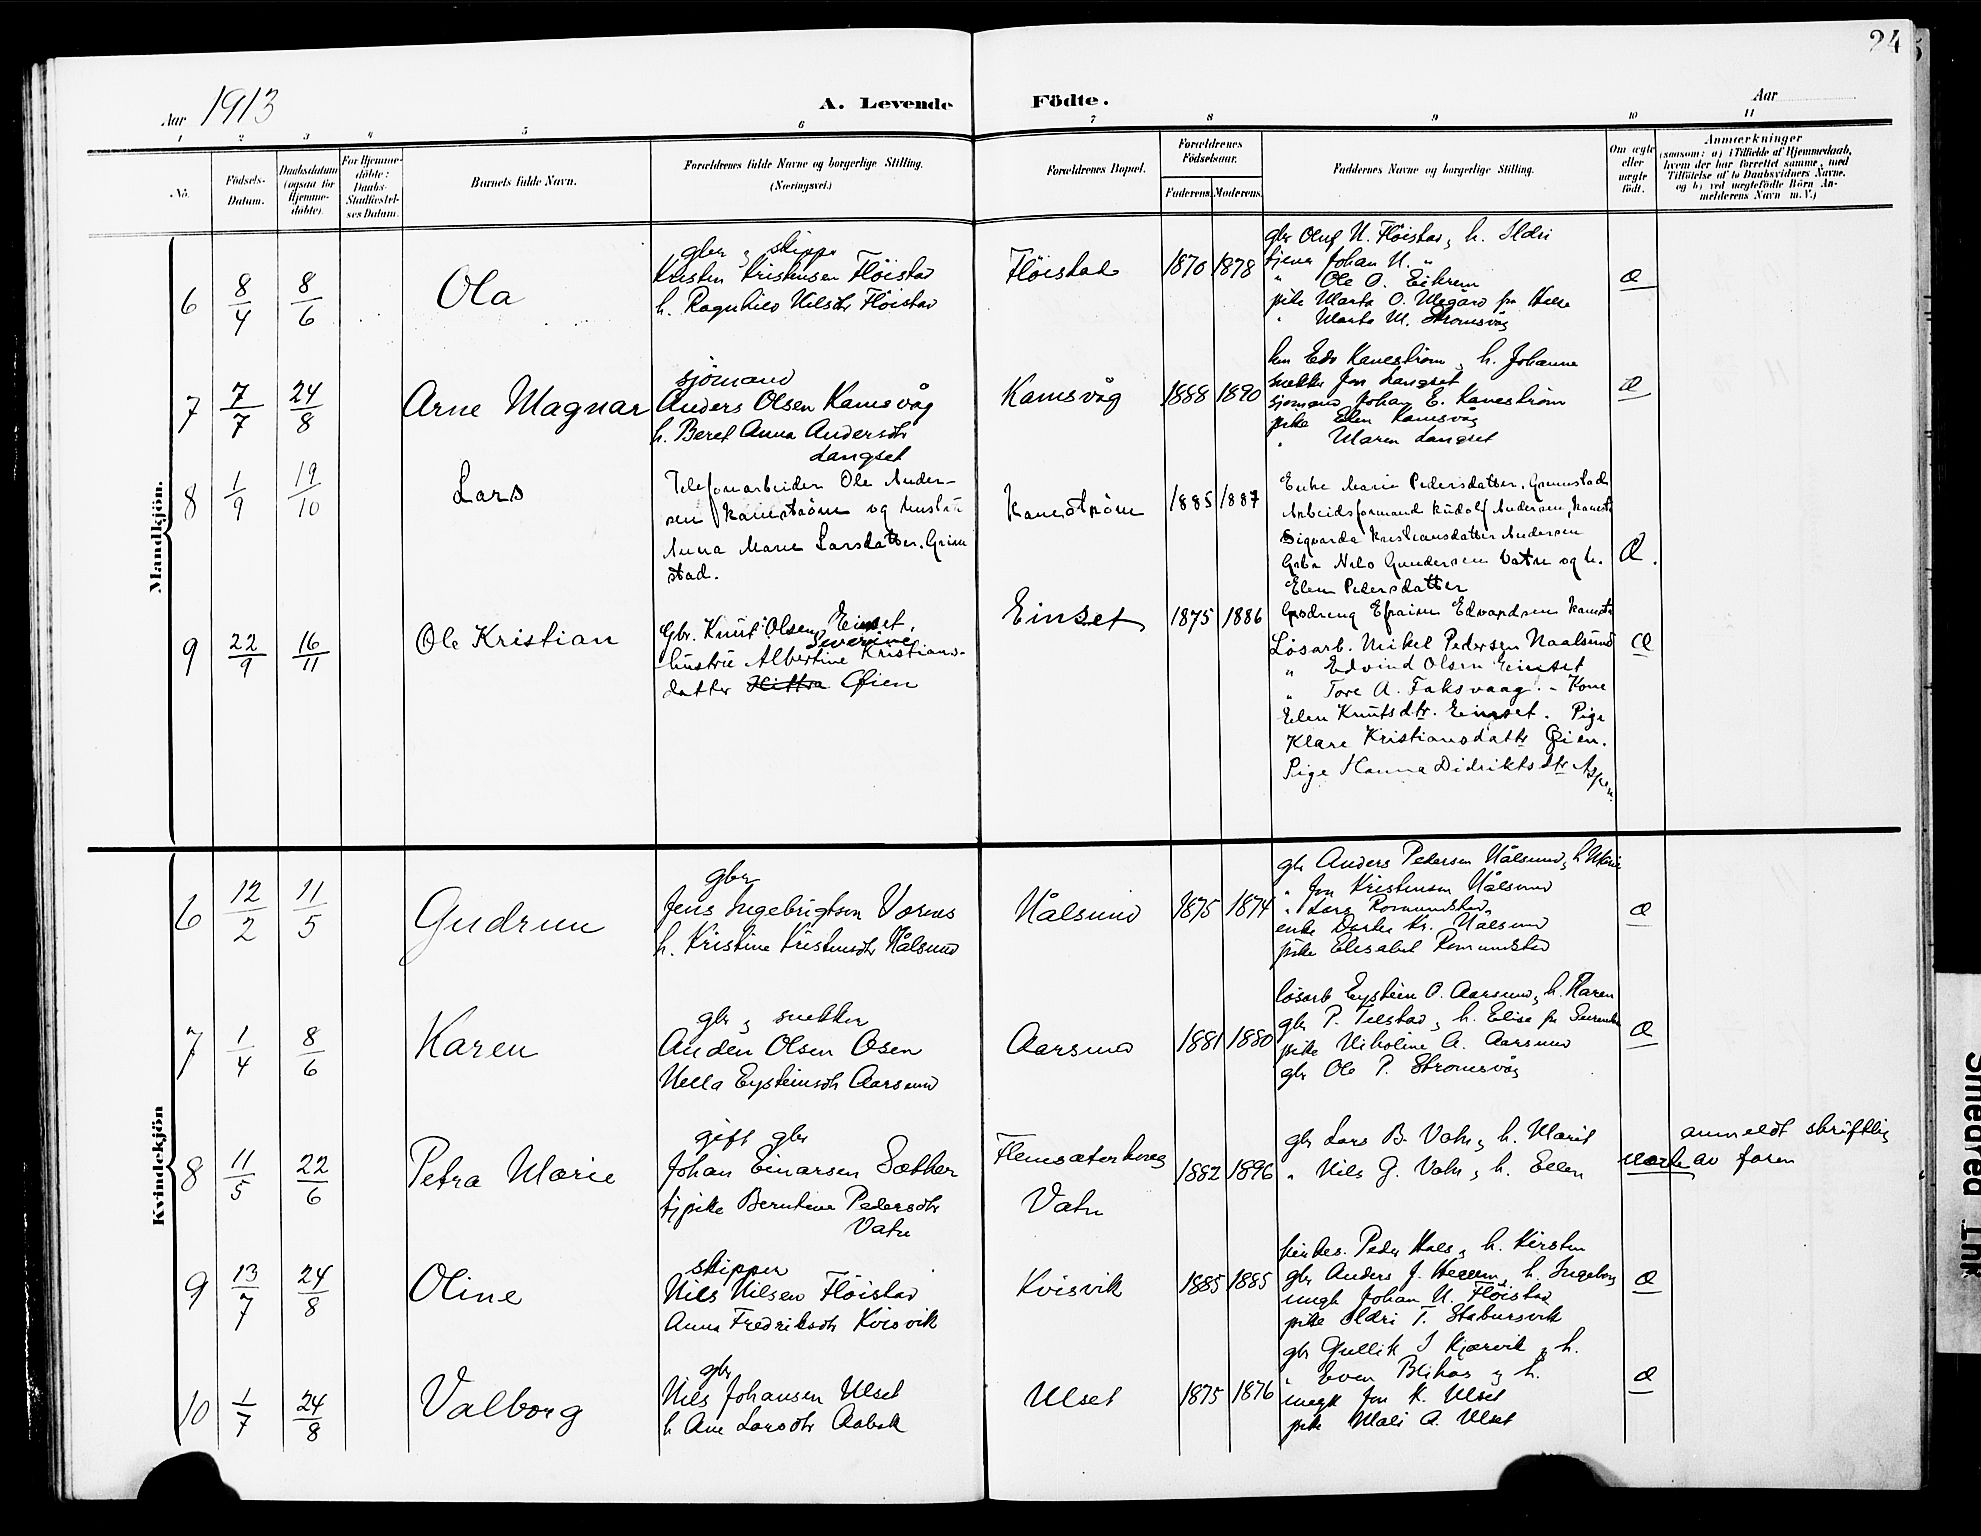 24
Aar 1913
A. Levende Födte.
Aar
1 2 3 4 5 6 7 8 9 10 11
No.
Fødsels-Datum.
Daabsdatum (ogsaa for Hjemme-døbte).
For Hjemme-døbte: Daabs-Stadfæstel-ses Datum.
Barnets fulde Navn.
Forældrenes fulde Navne og borgerlige Stilling. (Næringsvei.)
Forældrenes Bopæl.
Forældrenes Födselsaar.
Faderens Moderens
Faddernes Navne og borgerlige Stilling.
Om ægte eller uægte født.
Anmærkninger
(saasom: a) i Tilfælde af Hjemmedaab,
hvem der har forrettet samme, med
Tilföielse af to Daabsvidners Navne,
og b) ved uægtefödte Börn An-
melderens Navn m.V.)
Mandkjön.
6 8/4 8/6 Ola
gbr og skipper
Kristen Kristensen Fløistad
h. Ragnhild Nilsdtr Fløistad
Fløistad 1870 1878
gbr Oluf N. Fløistad og h. Ildri
tjener Johan N. "
" Ole O. Eikrem
pike Marta O. Megård fra Halsa
" Marta M. Strømsvåg
Æ
7 7/7 24/8 Arne Magnar
sjömand
Anders Olsen Kamsvåg
h. Beret Anna Andersdtr
Langset
Kamsvåg 1888 1890
Edv Kanestrøm og h. Johanne
snekker Jon Langset
sjomand Johan E. Kanestrøm
pike Elen Kamsvåg
" Maren Langset
Æ
8 1/9 19/10 Lars
Telefonarbeider Ole Ander-
sen Kanestrøm og hustru
Anna Marie Larsdatter. Grim
stad.
Kanestrøm 1885 1887
Enke Marie Pedersdatter, Grimstad
Arbeidsformand Rudolf Andersen, Kanestr
Sigvarda Kristiansdatter Andersen
Gbr Nils Gundersen Vatn og h.
Elen Pedersdatter
Æ.
9 22/9 16/11 Ole Kristian
Gbr. Knut Olsen Einset,
Severine
hustru Albertine Kristians-
datter Hittra Øien
Einset 1875 1886
Godreng Efraim Edvardsen Kanestr
Løsarb. Mikel Pedersen Naalsund
" Edvind Olsen Einset
" Tore A. Faksvaag. - Kone
Elen Knutsdtr. Einset. Pige
Klara Kristiansdatter Øien.
Pige Hanna Didriksdtr Aspen.
Æ
Kvindekjön
6 12/2 11/5 Gudrun
gbr
Jens Ingebrigtsen Vaernes
h. Kristine Kristensdtr Nålsund
Nålsund 1875 1874
gbr Anders Pedersen Nålsund, h Marie
" Jon Kristensen Nålsund
" Lars Romundstad
enke Dorte Kr. Nålsund
pike Elisabet Romundstad
Æ
7 1/4 8/6 Karen
gbr og snekker
Anders Olsen Osen
Nella Eysteinsdtr Aarsund
Aarsund 1881 1880
løsarb Eystein O. Aarsund og h. Karen
gbr P. Telstad og h. Elisa fra Surendal
pike Nikoline A. Aarsund
gbr Ole P. Strømsvåg
Æ
8 11/5 22/6 Petra Marie
gift gbr
Johan Einarsen Sæther
tjpike Berntine Pedersdtr
Vatn
Flemsæterhaug
Vatn
1882 1896
gbr Lars B. Vatn og h. Marit
" Nils G. Vatn og h. Ellen
uægte
anmeldt skriftlig
av faren
9 13/7 24/8 Oline
skipper
Nils Nilsen Fløistad
Anna Fredriksdtr Kvisvik
Kvisvik 1885 1885
Peder Hals og h. Kirsten
gbr Anders J. Heggem og h. Ingeborg
ungk Johan N. Fløistad
pike Ildri T. Stabursvik
Æ
10 1/7 24/8 Valborg
gbr
Nils Johansen Ulset
h Ane Larsdtr Aabak
Ulset 1875 1876
gbr Gullik I Kjørvik og h.
" Even Blikås og h.
ungk Jon K. Ulset
pike Mali A. Ulset
Æ